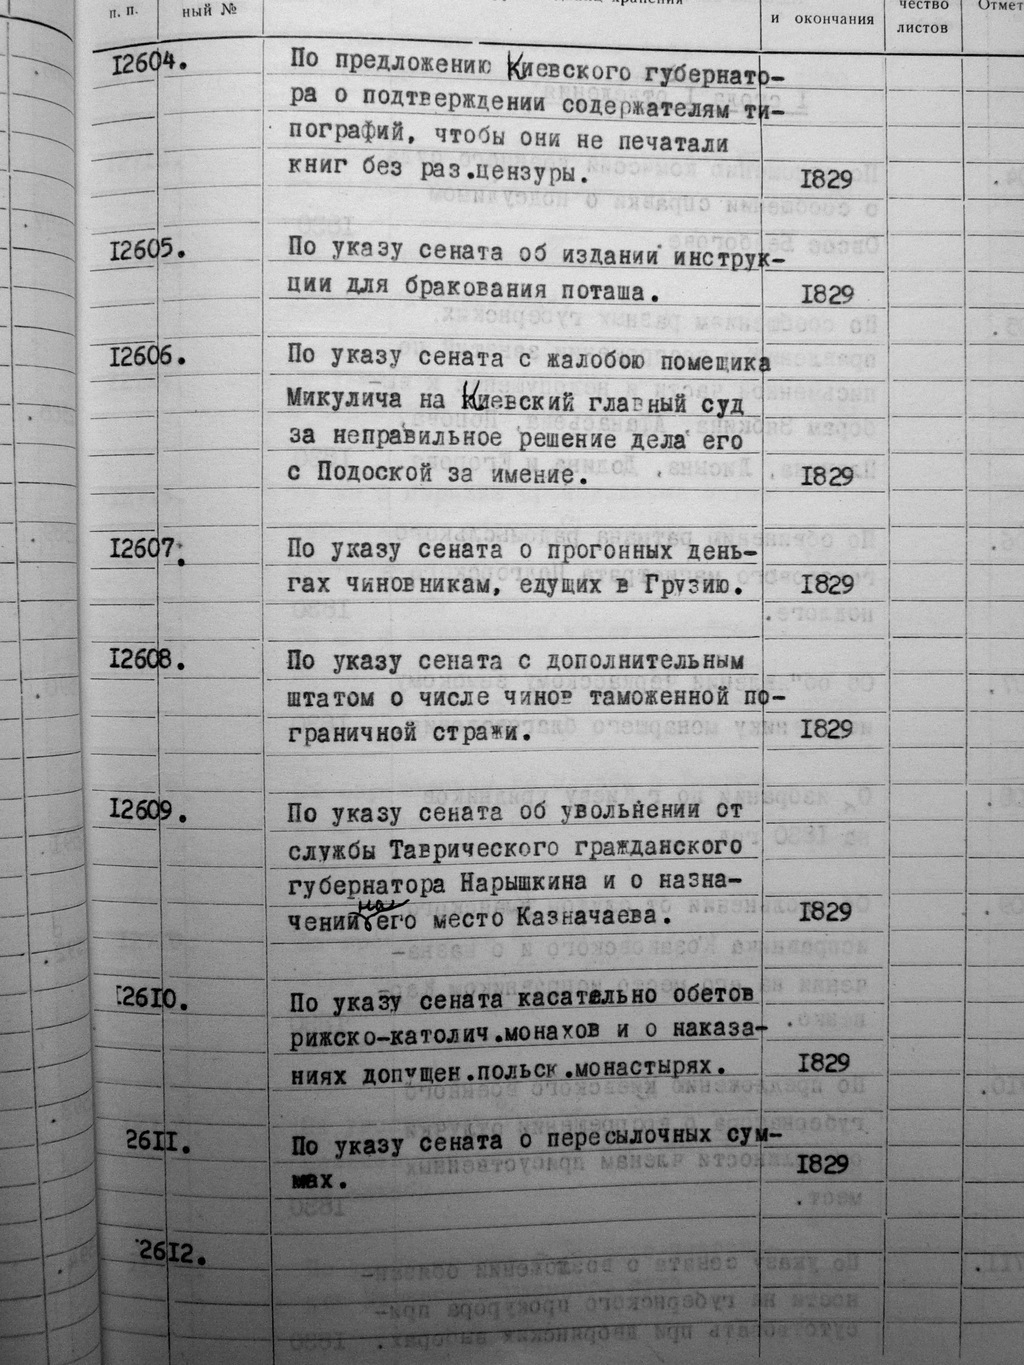 п. п.
ный №
и окончания
чество
листов
Отмет
12604.
По предложению Киевского губернато-
ра о подтверждении содержателям ти-
пографий, чтобы они не печатали
книг без раз.цензуры.
1829
12605.
По указу сената об издании инструк-
ции для бракования поташа.
1829
12606.
По указу сената с жалобою помещика
Микулича на Киевский главный суд
за неправильное решение дела его
с Подоской за имение.
1829
12607.
По указу сената о прогонных день-
гах чиновникам, едущих в Грузию.
1829
12608.
По указу сената с дополнительным
штатом о числе чинов таможенной по-
граничной стражи.
1829
12609.
По указу сената об увольнении от
службы Таврического гражданского
губернатора Нарышкина и о назна-
чений на его место Казначаева.
1829
12610.
По указу сената касательно обетов
рижско-католич.монахов и о наказа-
ниях допущен.польск.монастырях.
1829
2611.
По указу сената о пересылочных сум-
мах.
1829
2612.